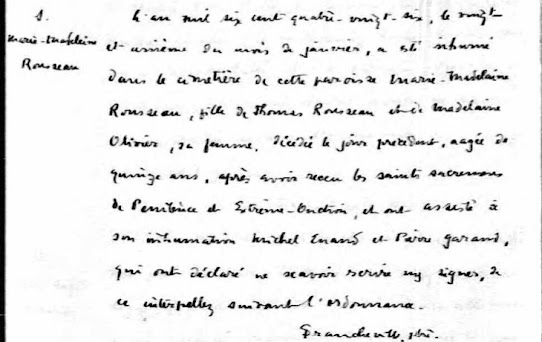 S.
Marie-Madeleine
Rousseau
L'an mil six cent quatre-vingt-six, le vingt
et unième du mois de janvier, a esté inhumé
dans le cimetière de cette paroisse Marie-Madelaine
Rousseau, fille de Thomas Rousseau et de Madelaine
Olivier, sa femme, décédée le jour précédent, aagée de
quinze ans, après avoir receu les saints sacremens
de Penitence et Extreme-Onction, et ont assisté à
son inhumation Michel Enaud et Pierre Garand,
qui ont déclaré ne scavoir escrire ny signer, de
ce interpellez suivant l'ordonnance.
Francheville, ptre.